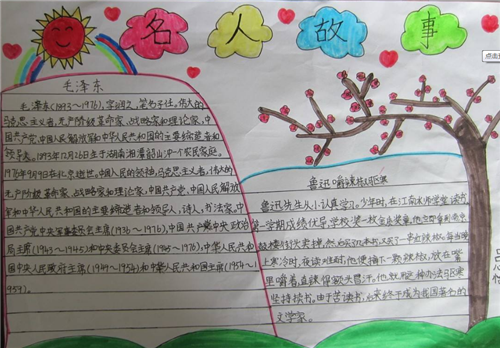 名人故事
毛泽东
毛泽东(1893～1976),字润之,笔名子任。伟大的
马克思主义者,无产阶级革命家、战略家和理论家,中
国共产党、中国人民解放军和中华人民共和国的主要缔造者和
领导者。1893年12月26日生于湖南湘潭韶山冲一个农民家庭。
1976年9月9日在北京逝世。中国人民的领袖,马克思主义者,伟大的
无产阶级革命家、战略家和理论家,中国共产党、中国人民解放
军和中华人民共和国的主要缔造者和领导人,诗人,书法家。中
国共产党中央政治
局主席(1943～1945)和中央委员会主席(1945～1976),中华人民共和
国中央人民政府主席(1949～1954)和中华人民共和国主席(1954～1
959)。
鲁迅嚼辣椒驱寒
鲁迅先生从小认真学习。少年时,在江南水师学堂读书,
第一学期成绩优异,学校奖
上寒冷时,夜读难耐,他便摘下一颗辣椒,放在嘴
里嚼着,直辣得额头冒汗。他就用这种办法驱寒
坚持读书。由于苦读书,后来终于成为我国著名的
文学家。
点击